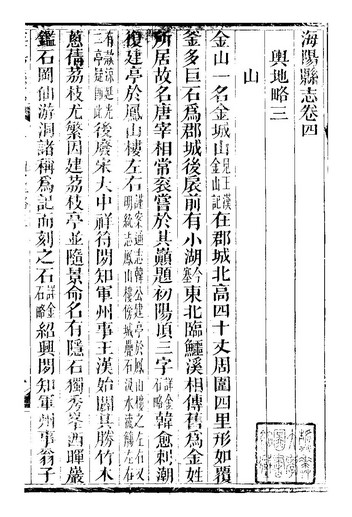 海陽縣志卷四
輿地略三
山
金山一名金城山見王漢金山記在郡城北高四十丈周圍四里形如覆
釜多巨石爲郡城後扆前有小湖今塞東北臨鱷溪相傳舊爲金姓
所居故名唐宰相常袞嘗於其巔題初陽頂三字詳金石略韓愈刺潮
復建亭於鳳山樓左右謹案通志韓公建亭於鳳山樓之左右又明統志鳳山樓傍城疊石
後廢宋大中祥符間知軍州事王漢始闢其勝竹木
蔥蒨荔枝尤繁因建荔枝亭並隨景命名有隱石獨秀峯西暉巖
鑑石岡仙游洞諸稱爲記而刻之石詳金石略紹興間知軍州事翁子